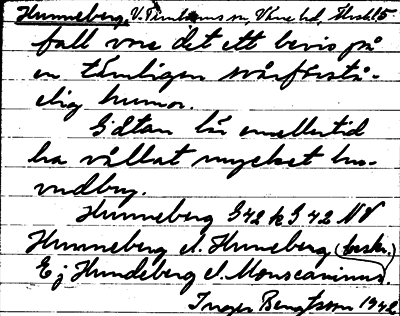 Hunneberg, V. Tunhems sn, Väne hd, Älvsb. l. 5.
fall vore det ett bevis på
en tämligen svårförstå-
elig humor.
Gåtan lär emellertid
ha vållat mycket hu-
vudbry.
Hunneberg G 42 k G 42 NV
Hunneberg el. Huneberg (beskr.)
Ej Hundeberg el. Monscaninus.
Inger Bengtsson 1942